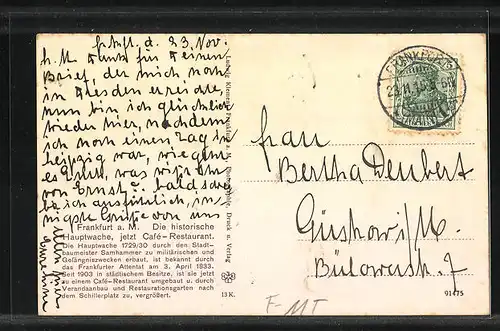 Frkft. d. 23. Nov.
L. M. Dank für Deinen
Brief, der mich noch
in Dresden erreichte,
nun bin ich glücklich
wieder hier, nachdem
ich noch einen Tag in
Leipzig war, wie geht
es Euch, was
von Ernst? bald schrei-
be ich ausführlich, in-
nigste Grüße von uns
allen
Frankfurt a. M. Die historische
Hauptwache, jetzt Café-Restaurant.
Die Hauptwache 1729/30 durch den Stadt-
baumeister Samhammer zu militärischen und
Gefängniszwecken erbaut, ist bekannt durch
das Frankfurter Attentat am 3. April 1833.
Seit 1903 in städtischem Besitze, ist sie jetzt
zu einem Café-Restaurant umgebaut u. durch
Verandaanbau und Restaurationsgarten nach
dem Schillerplatz zu, vergrößert.
Ludwig Klement, Frankfurt a. M.
Druck u. Verlag
13 K.
FRANKFURT
(MAIN)
Frau
Bertha Deubert
Güstrow i/M.
Bülowerstr. 7
F-MT
91475